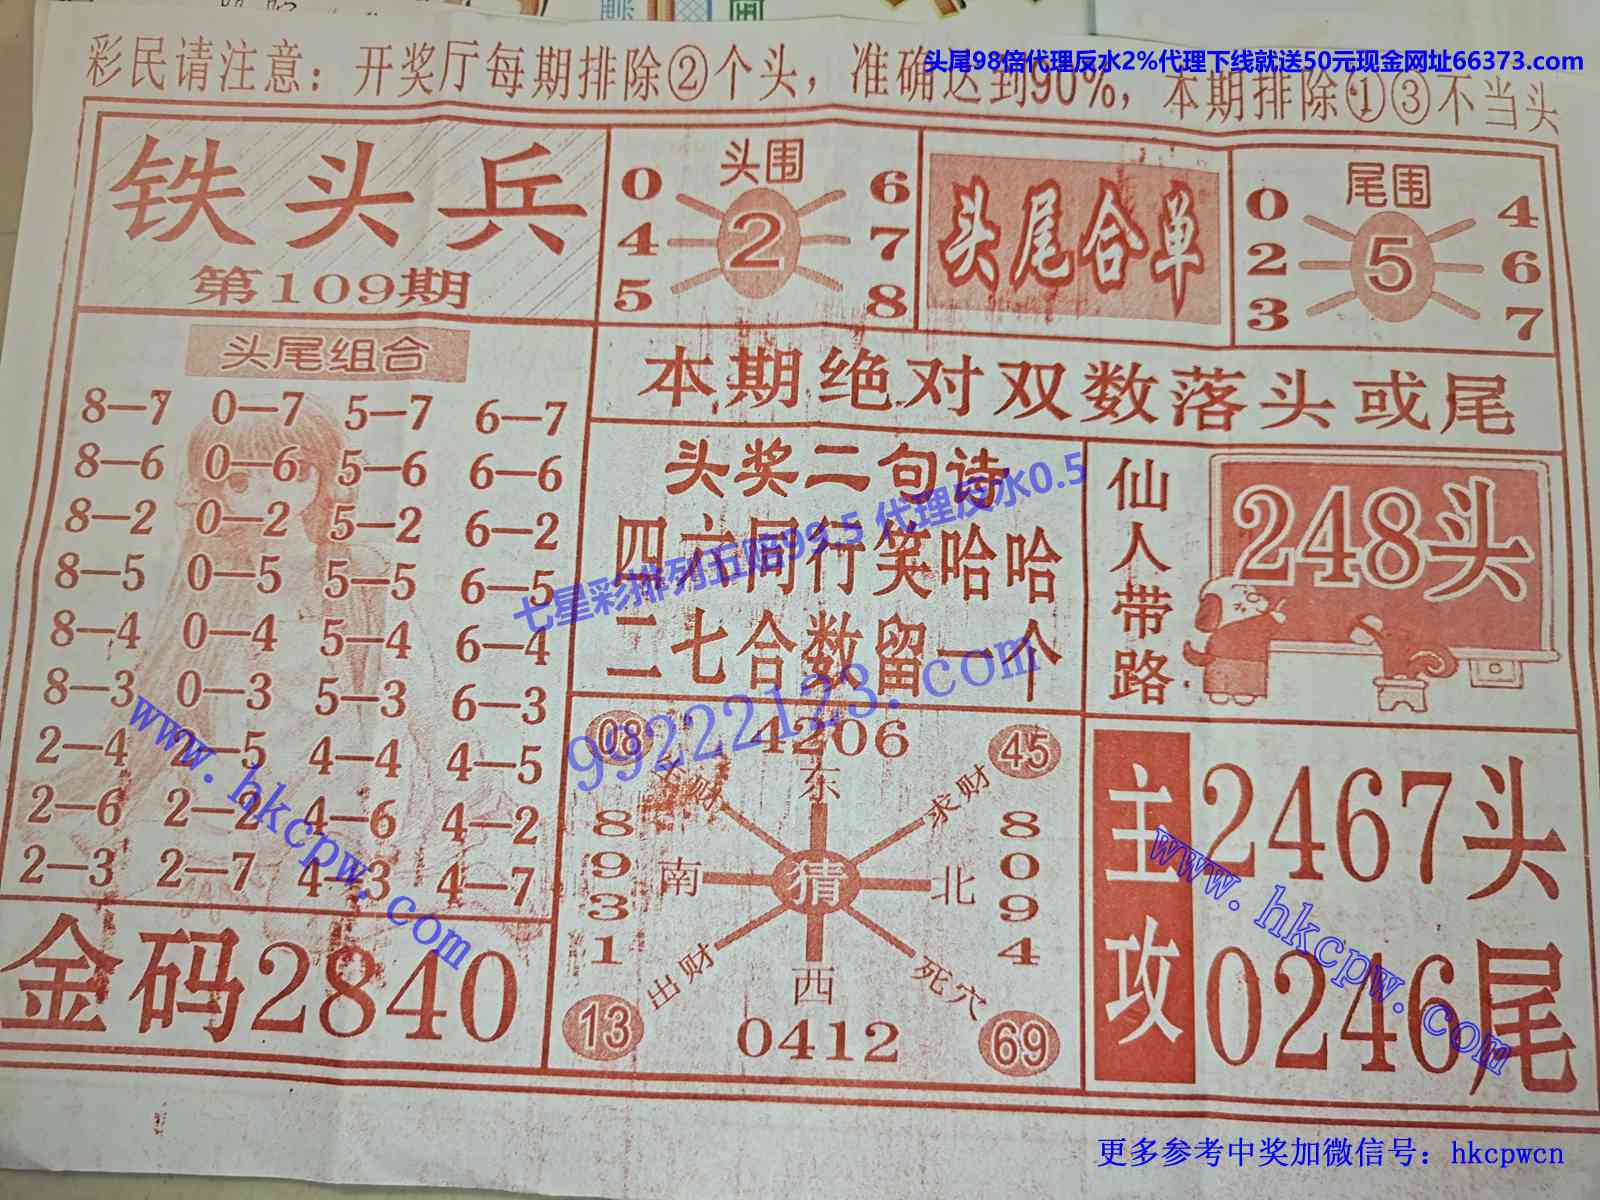 彩民请注意：开奖厅每期排除②个头，准确达到90%，本期排除①③不当头
头尾98倍代理反水2%代理下线就送50元现金网址66373.com
铁头兵
第109期
头围
0 6
4 2 7
5 8
头尾合单
尾围
0 4
2 5 6
3 7
本期绝对双数落头或尾
头尾组合
8—7 0—7 5—7 6—7
8—6 0—6 5—6 6—6
8—2 0—2 5—2 6—2
8—5 0—5 5—5 6—5
8—4 0—4 5—4 6—4
8—3 0—3 5—3 6—3
2—4 2—5 4—4 4—5
2—6 2—2 4—6 4—2
2—3 2—7 4—3 4—7
金码2840
头奖二句诗
四六同行笑哈哈
二七合数留一个
七星彩排列五赔99.5 代理反水0.5
99222123.com
仙人带路
248头
08 4206 45
东
求财
8931
南 猜 北
8094
出财 西 死穴
13 0412 69
主攻
2467头
0246尾
www.hkcpw.com
www.hkcpw.com
更多参考中奖加微信号：hkcpwcn